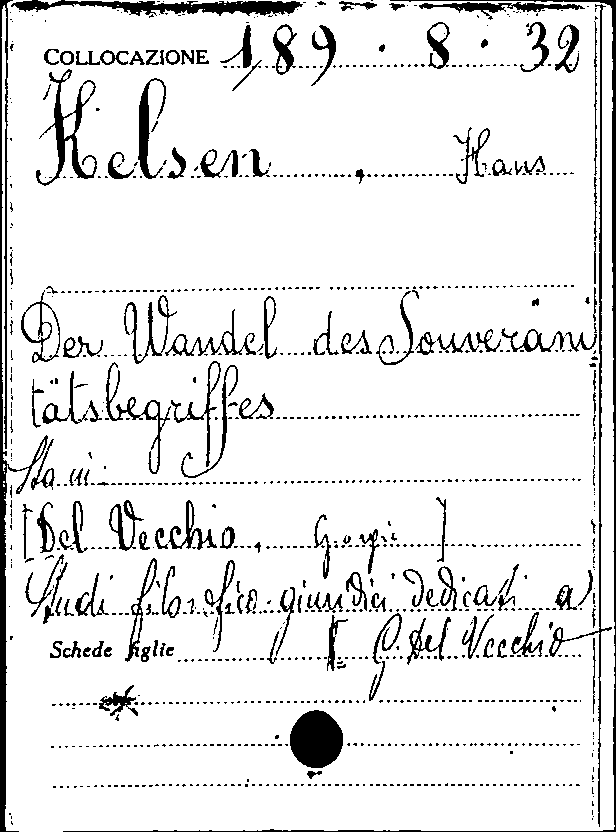 COLLOCAZIONE 189 . 8 . 32
Kelsen , Hans
Der Wandel des Souveräni
tätsbegriffes
Sta in:
[Del Vecchio, Giorgio]
Studi filosofico-giuridici dedicati a
Schede figlie G. Del Vecchio